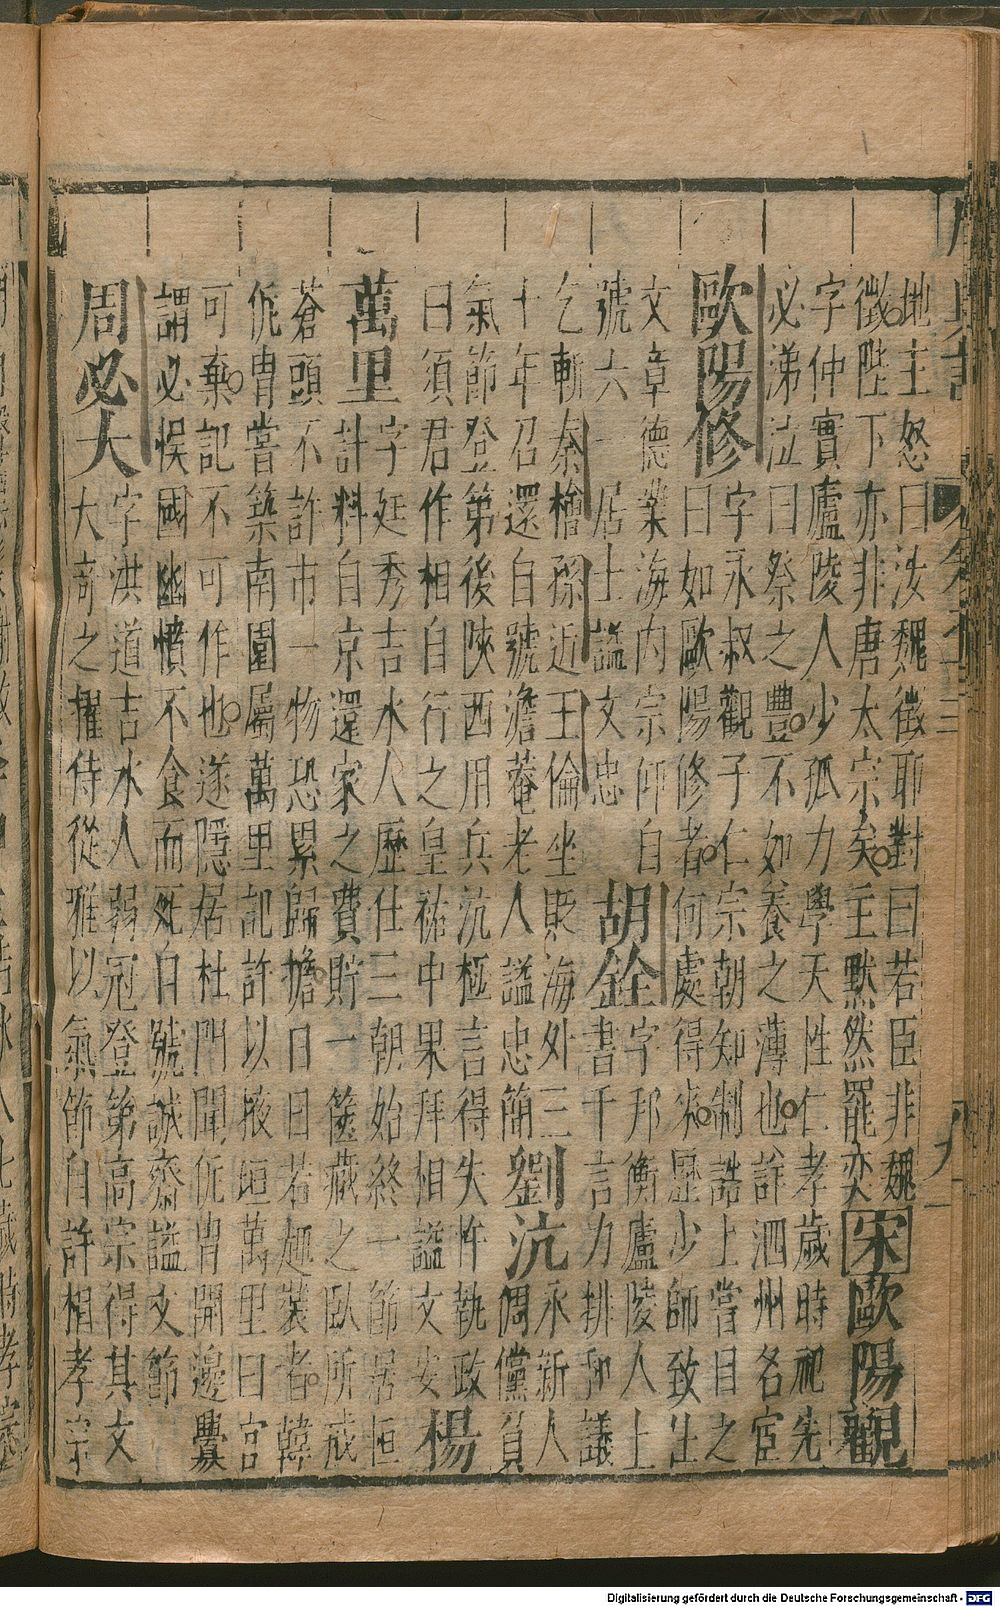 地主怒曰汝魏徵耶對曰若臣非魏
徵陛下亦非唐太宗矣主黙然罷奕
宋歐陽觀
字仲實廬陵人少孤力學天性仁孝歲時祀先
必涕泣曰祭之豐不如養之薄也許泗州名宦
歐陽修
字永叔觀子仁宗朝知制誥上嘗目之
曰如歐陽修者何處得來歷少師致仕
文章德業海內宗師自
號六一居士諡文忠
胡銓
字邦衡廬陵人上
書千言力排和議
乞斬秦檜孫近王倫坐貶海外三
十年召還自號澹菴老人諡忠簡
劉沆
永新人
倜儻負
氣節登第後陝西用兵沆極言得失忤執政
曰須君作相自行之皇祐中果拜相諡文安
楊
萬里
字廷秀吉水人歷仕三朝始終一節居恒
計料自京還家之費貯一篋藏之臥所戒
蒼頭不許市一物恐累歸擔日日若趣裝者韓
侂胄嘗築南園屬萬里記許以掖垣萬里曰官
可棄記不可作也遂隱居杜門聞侂胄開邊釁
謂必悞國幽憤不食而死自號誠齋諡文節
周必大
字洪道吉水人弱冠登第高宗得其文
大奇之擢侍從雅以氣節自許相孝宗
Digitalisierung gefördert durch die Deutsche Forschungsgemeinschaft - DFG